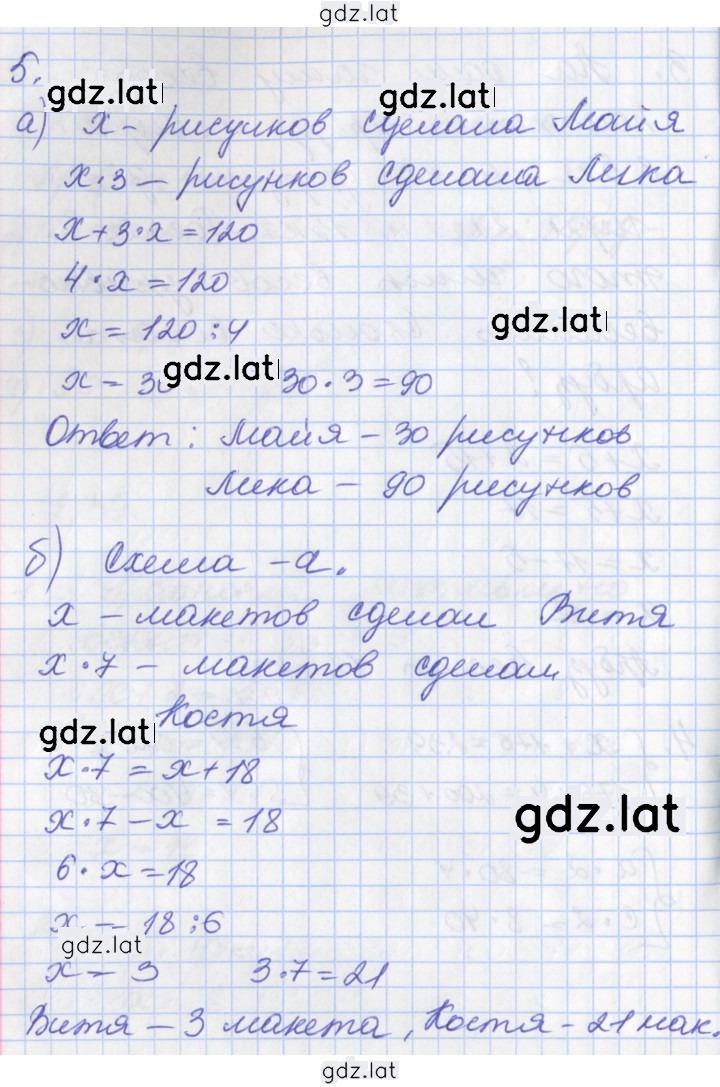 gdz.lat
5.
gdz.lat
gdz.lat
а) х - рисунков сделала Майя
х·3 – рисунков сделала Лика
х+3·х=120
4·х=120
х=120:4
gdz.lat
х=30 30·3=90
gdz.lat
Ответ: Майя – 30 рисунков
Лика – 90 рисунков
б) Схема – а.
х – макетов сделал Витя
х·7 – макетов сделал
Костя
gdz.lat
х·7=х+18
х·7-х=18
gdz.lat
6·х=18
х=18:6
gdz.lat
х=3 3·7=21
Витя – 3 макета, Костя – 21 мак.
gdz.lat